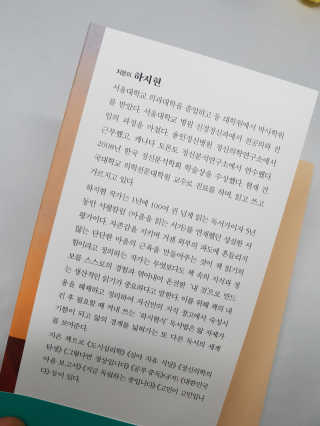 지은이 하지현
서울대학교 의과대학을 졸업하고 동 대학원에서 박사학위
를 받았다. 서울대학교 병원 신경정신과에서 전공의와 전
임의 과정을 마쳤다. 용인정신병원 정신의학연구소에서
근무했고, 캐나다 토론토 정신분석연구소에서 연수했다.
2008년 한국 정신분석학회 학술상을 수상했다. 현재 건
국대학교 의학전문대학원 교수로 진료를 하며, 읽고 쓰고
가르치고 있다.
하지현 작가는 1년에 100여 권 넘게 읽는 독서가이자 5년
동안 서평칼럼 〈마음을 읽는 서가〉를 연재했던 성실한 서
평가이다. 자존감을 지키며 거센 외부의 파도에 흔들리지
않는 단단한 마음의 근육을 만들어주는 것이 책 읽기의
힘이라고 정의하는 작가는 무엇보다도 책 속의 지식과 정
보를 스스로의 경험과 엮어내어 온전한 '내 것'으로 만드
는 생산적인 읽기가 중요하다고 말한다. 이를 위해 책의 내
용을 해체하고 정리하여 자신만의 지식 창고에서 숙성시
킨 후 필요할 때 꺼내 쓰는
독서법은 삶 자체가
기쁨이 되고 삶의 경계를 넓혀가는 또 다른 독서의 세계
를 보여준다.
지은 책으로 《도시심리학》 《심야 치유 식당》 《정신의학의
탄생》 《그렇다면 정상입니다》 《공부 중독》(공저) 《대한민국
마음 보고서》 《지금 독립하는 중입니다》 《고민이 고민입니
다》 등이 있다.